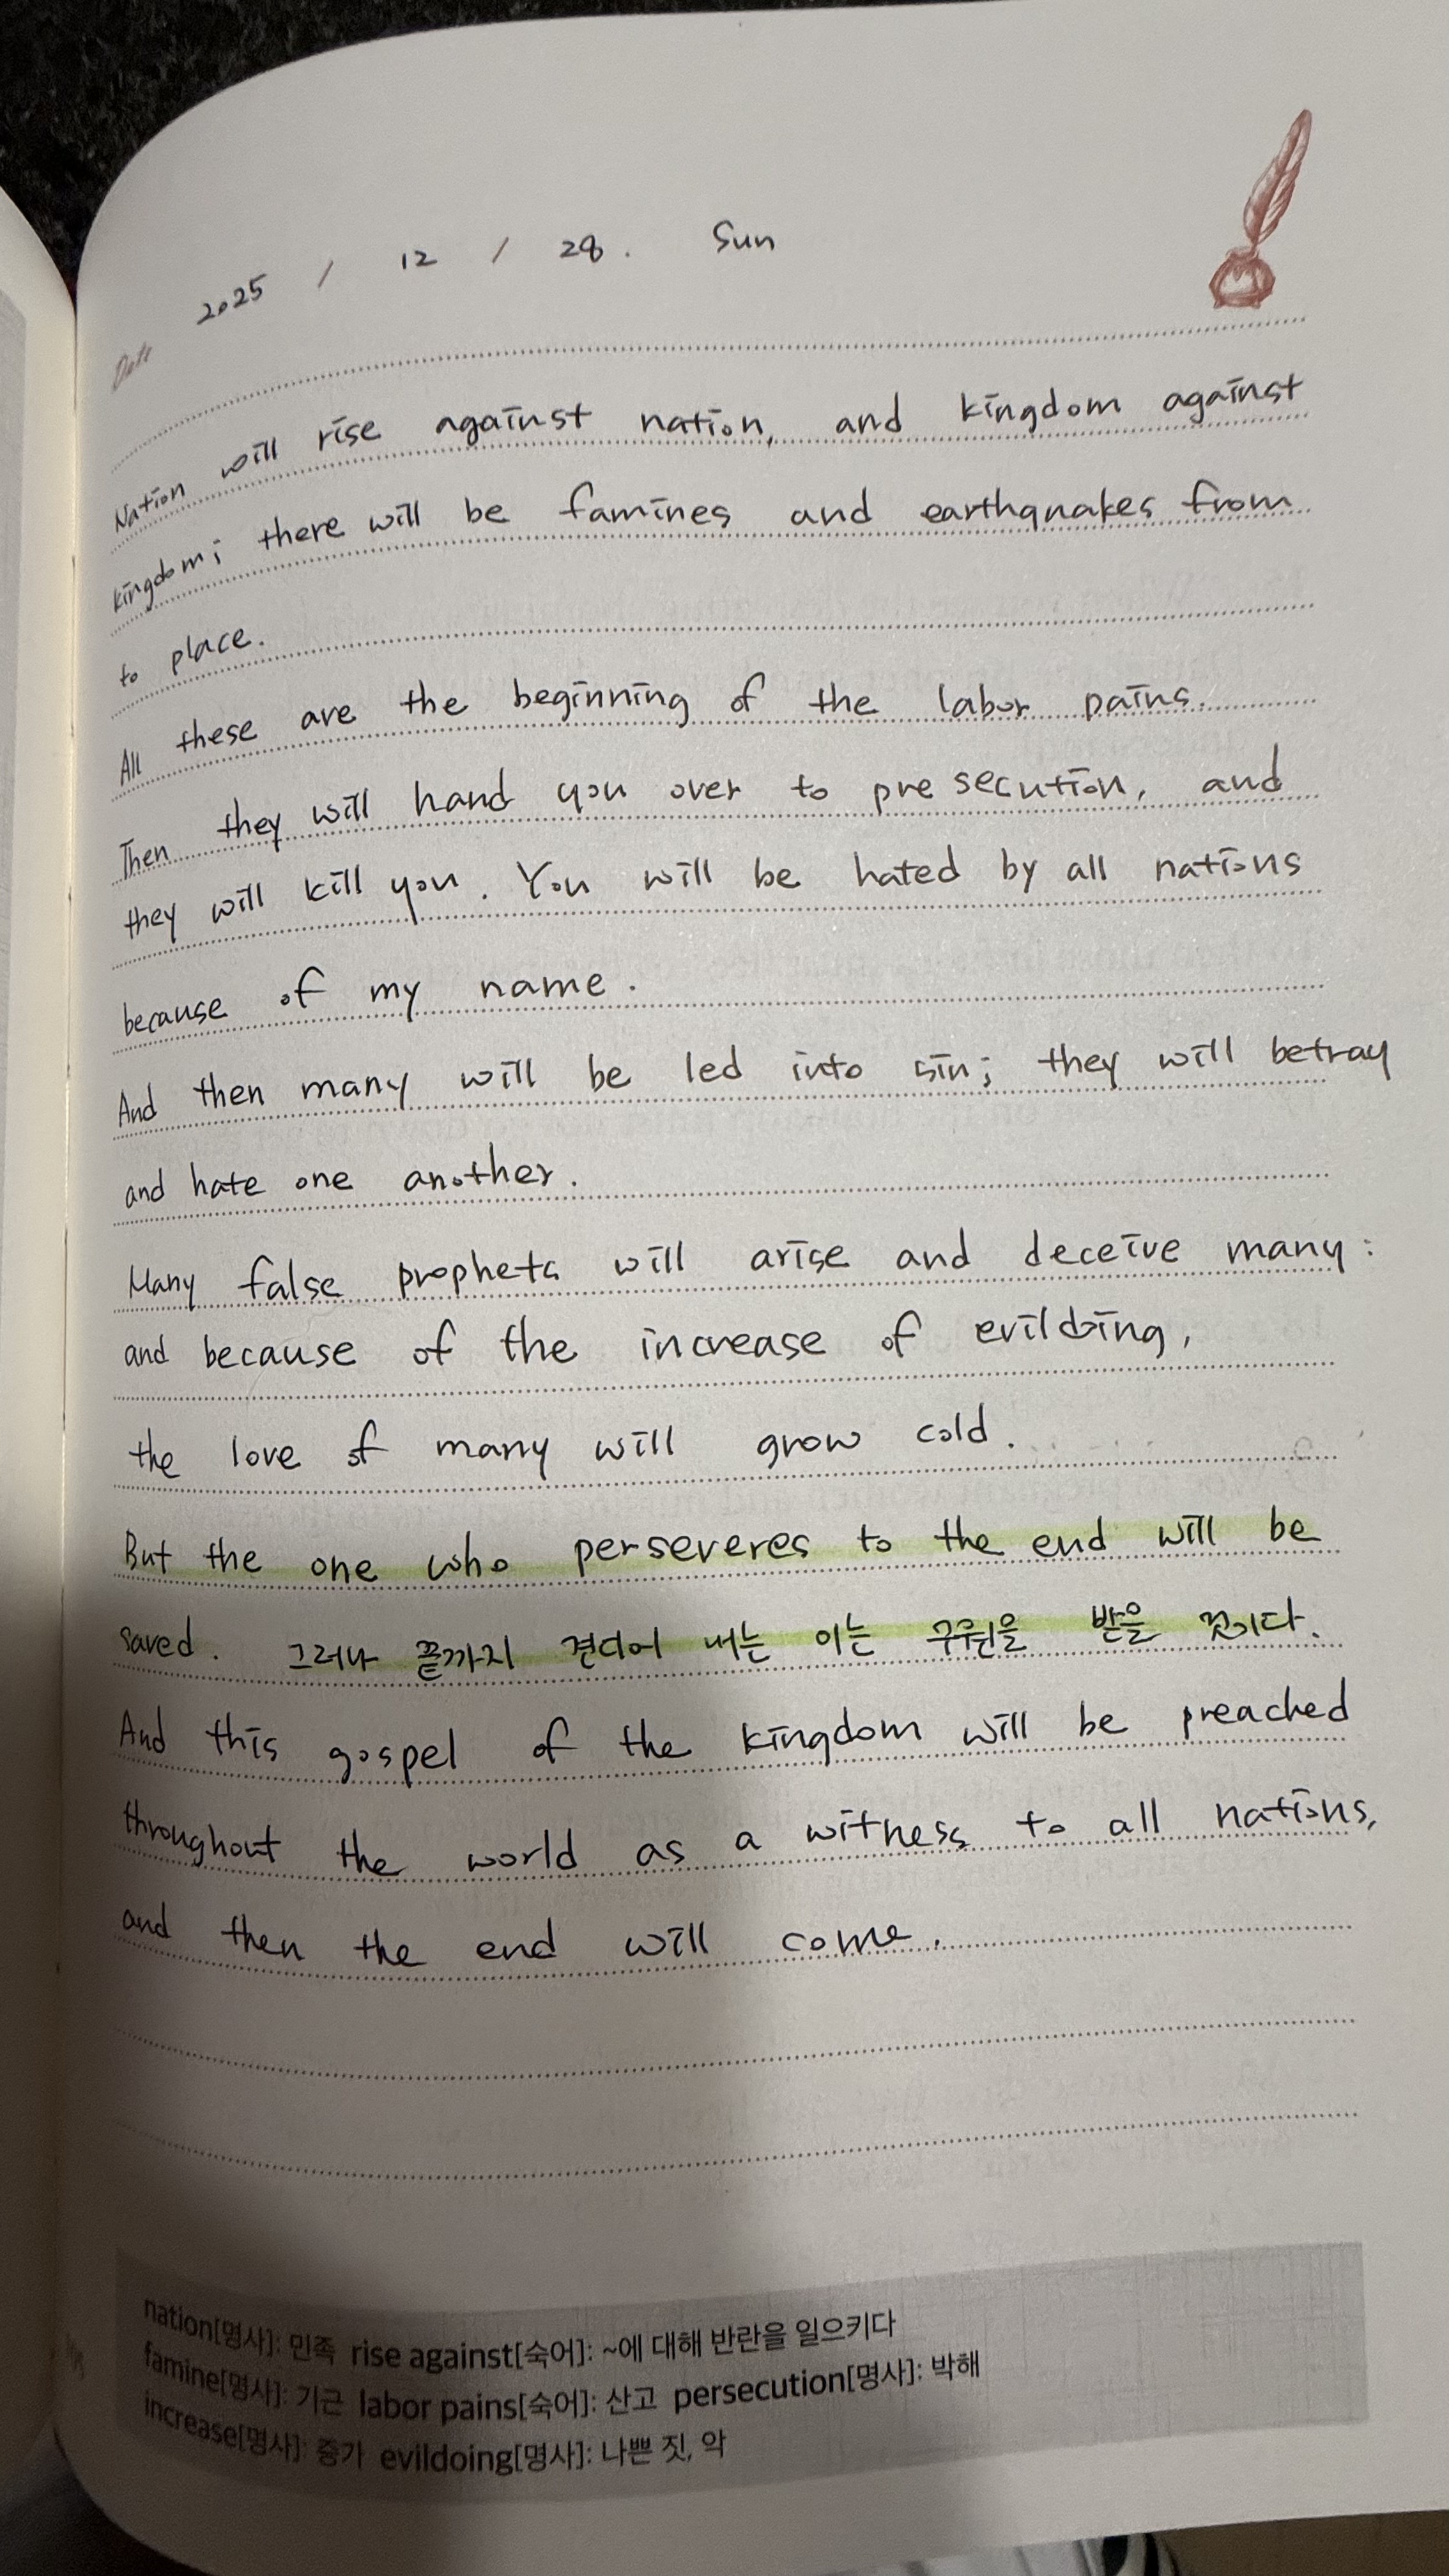 Date 2025 / 12 / 28. Sun
Nation will rise against nation, and kingdom against
kingdom; there will be famines and earthquakes from
to place.
All these are the beginning of the labor pains.
Then they will hand you over to presecution, and
they will kill you. You will be hated by all nations
because of my name.
And then many will be led into sin; they will betray
and hate one another.
Many false prophets will arise and deceive many:
and because of the increase of evildoing,
the love of many will grow cold.
But the one who perseveres to the end will be
saved. 그러나 끝까지 견디어 내는 이는 구원을 받을 것이다.
And this gospel of the kingdom will be preached
throughout the world as a witness to all nations,
and then the end will come.
nation[명사]: 민족 rise against[숙어]: ~에 대해 반란을 일으키다
famine[명사]: 기근 labor pains[숙어]: 산고 persecution[명사]: 박해
increase[명사]: 증가 evildoing[명사]: 나쁜 짓, 악